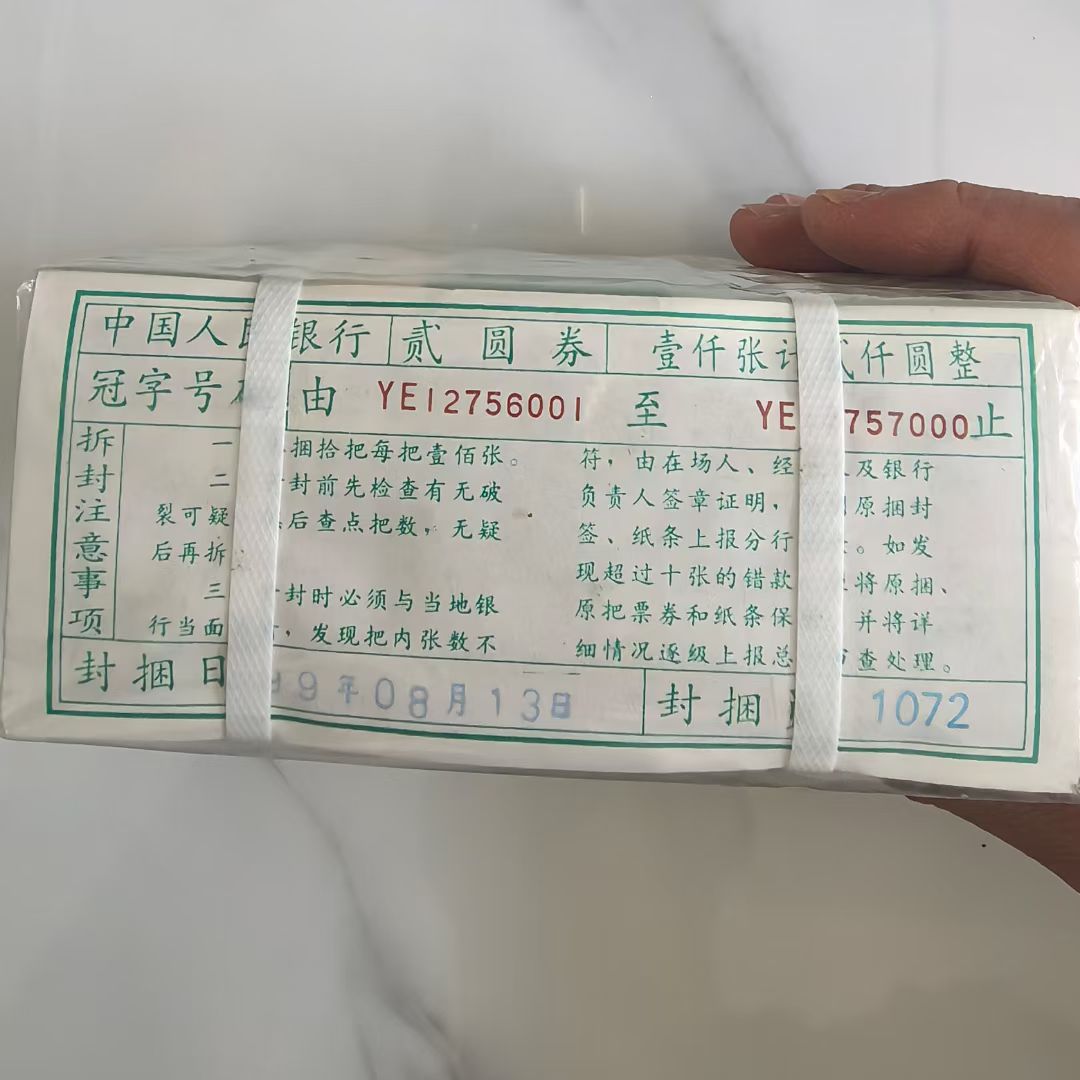 中国人民银行 贰圆券 壹仟张计贰仟圆整
冠字号码 由 YE12756001 至 YE 757000 止
拆封注意事项
一 捆拾把每把壹佰张。
二 封前先检查有无破
裂可疑 后查点把数，无疑
后再拆
三 封时必须与当地银
行当面 ，发现把内张数不
符，由在场人、经 人及银行
负责人签章证明， 原捆封
签、纸条上报分行 。如发
现超过十张的错款 将原捆、
原把票券和纸条保 并将详
细情况逐级上报总 查处理。
封捆日 99年08月13日 封捆 1072